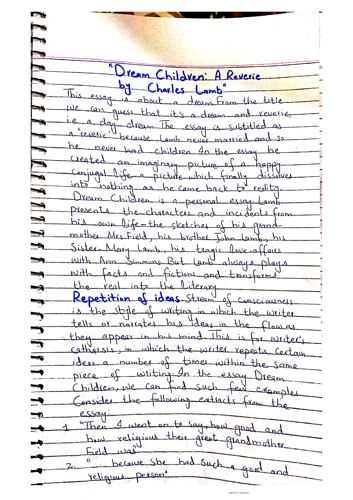 "Dream Children: A Reverie
by Charles Lamb"
This essay is about a dream. From the title
we can guess that it's a dream and reverie,
i.e a day dream. The essay is subtitled as
a 'reverie' because Lamb never married and so
he never had children. In the essay he
created an imaginary picture of a happy
conjugal life-a picture which finally dissolves
into nothing as he came back to reality.
Dream Children is a personal essay. Lamb
presents the characters and incidents from
his own life-the sketches of his grand-
mother Mrs. Field, his brother John Lamb, his
Sister Mary Lamb, his tragic love affairs
with Ann Simmons. But Lamb always plays
with facts and fictions and transforms
the real into the literary.
Repetition of ideas. Stream of Consciousness
is the style of writing in which the writer
tells or narrates his ideas in the flow as
they appear in his mind. This is for writer's
catharsis, in which the writer repeats certain
ideas a number of times within the same
piece of writing. In the essay Dream
Children, we can find such few examples.
Consider the following extracts from the
essay:
1. "Then I went on to say, how good and
how religious their great grandmother
Field was"
2. "... because she had such a good and
religious person"